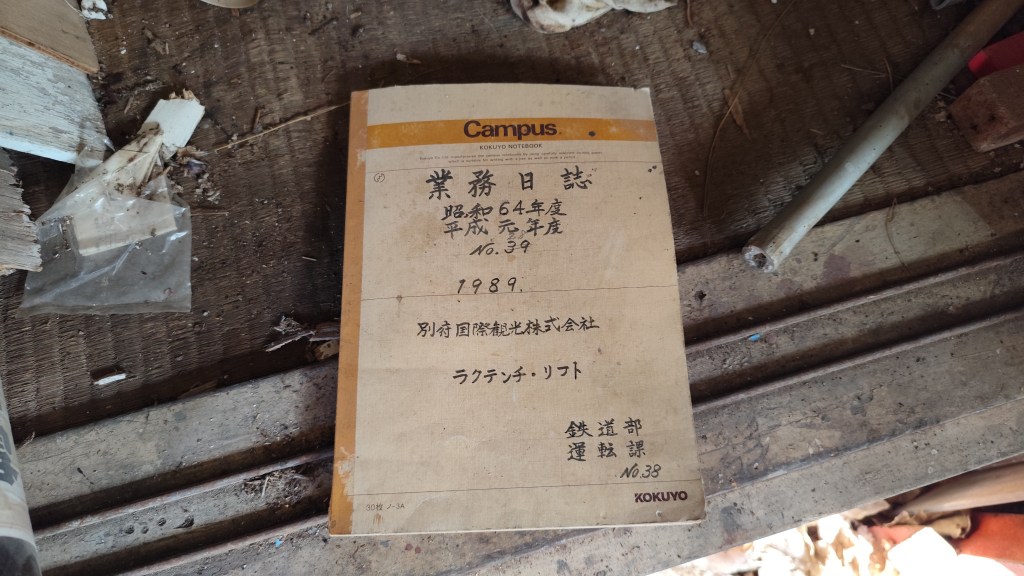 Campus
KOKUYO NOTEBOOK
業務日誌
昭和64年度
平成元年度
No.39
1989.
別府国際観光株式会社
ラクテンチ・リフト
鉄道部
運転課
No.38
KOKUYO
30枚 ノ-3A